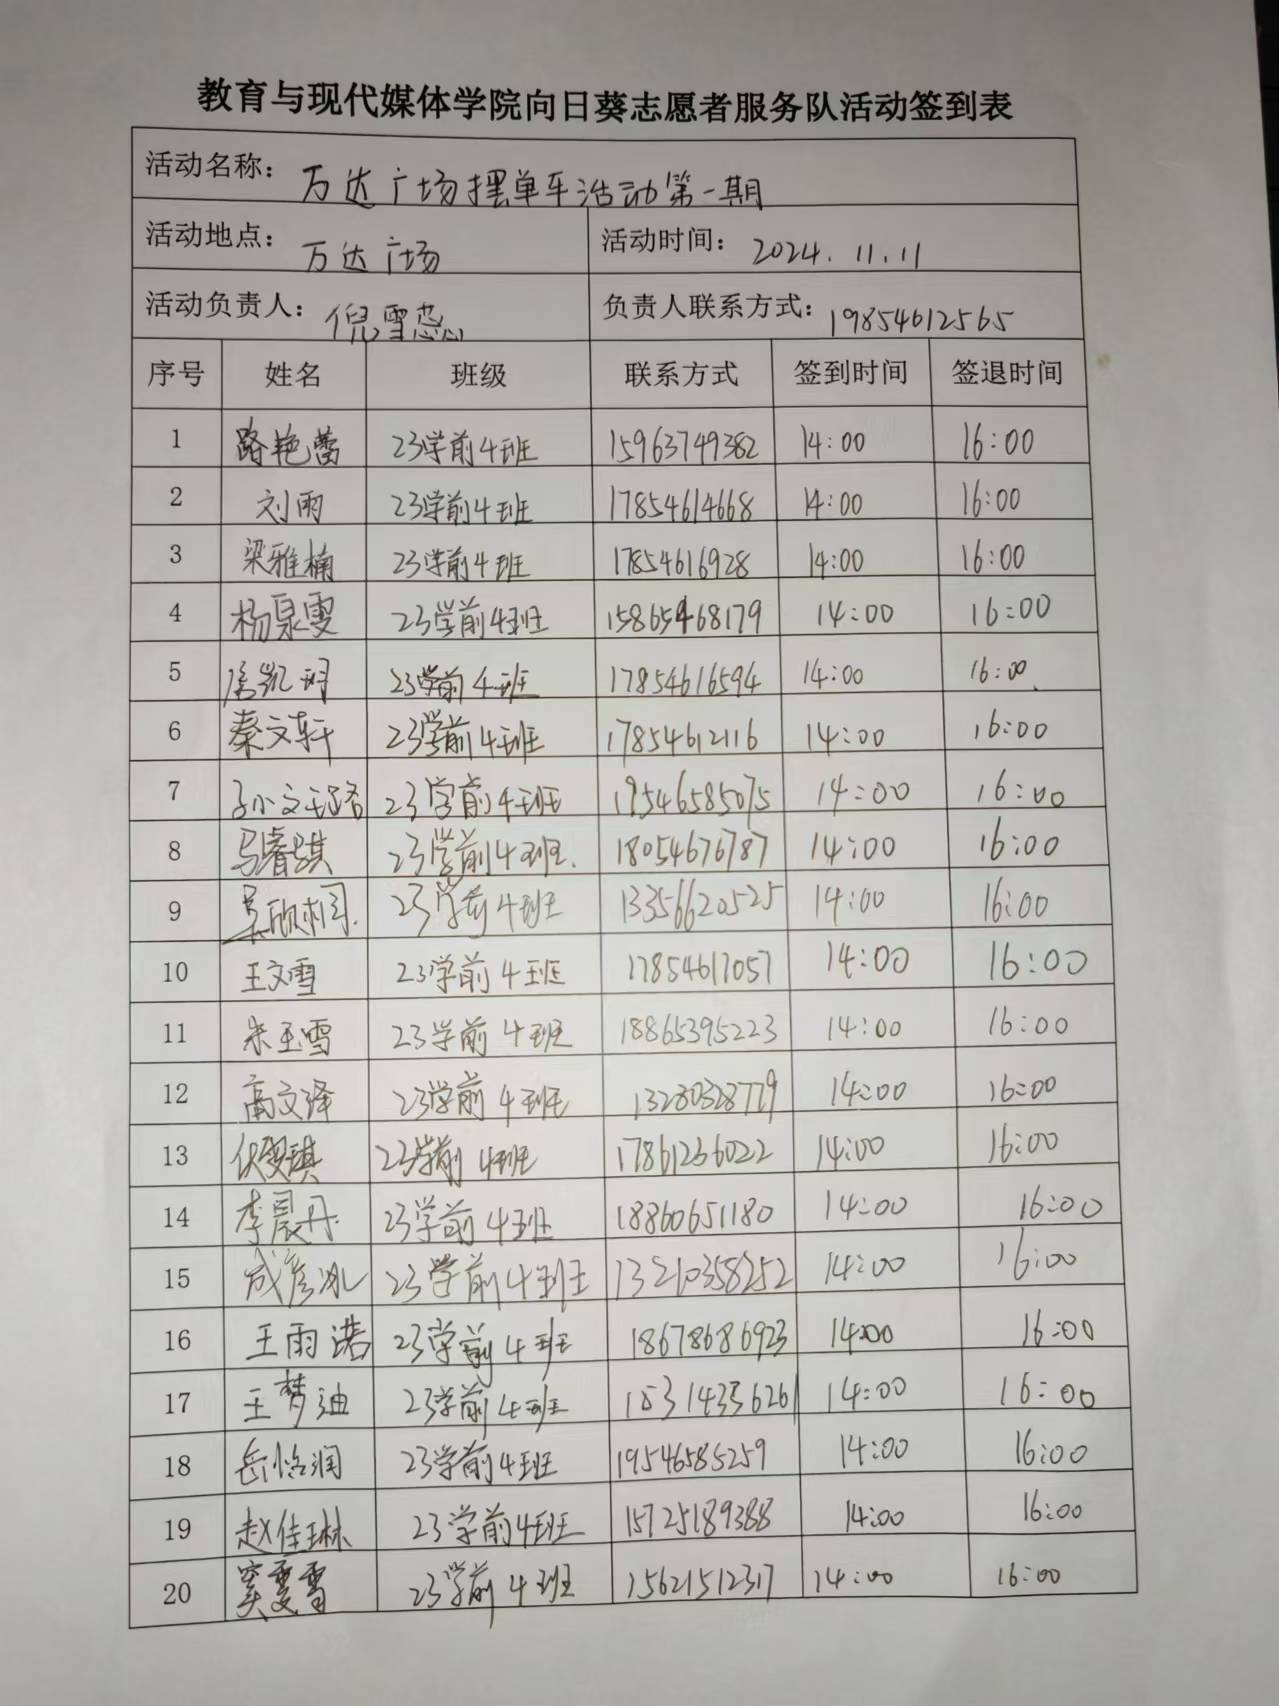 教育与现代媒体学院向日葵志愿者服务队活动签到表
活动名称：万达广场摆单车活动第一期
活动地点：万达广场 活动时间：2024.11.11
活动负责人：倪雪蕊 负责人联系方式：19854612565
序号 姓名 班级 联系方式 签到时间 签退时间
1 路艳蕾 23学前4班 15963749382 14:00 16:00
2 刘雨 23学前4班 17854614668 14:00 16:00
3 梁雅楠 23学前4班 17854616928 14:00 16:00
4 杨泉雯 23学前4班 15865468179 14:00 16:00
5 23学前4班 17854616594 14:00 16:00
6 秦文轩 23学前4班 17854612116 14:00 16:00
7 孙文珺 23学前4班 19546585075 14:00 16:00
8 马睿琪 23学前4班. 18054676787 14:00 16:00
9 吴欣桐. 23学前4班 13356620525 14:00 16:00
10 王文雪 23学前4班 17854617057 14:00 16:00
11 朱玉雪 23学前4班 18865395223 14:00 16:00
12 高文泽 23学前4班 13280328779 14:00 16:00
13 伏雯琪 23学前4班 17861236022 14:00 16:00
14 李晨丹 23学前4班 18860651180 14:00 16:00
15 成彦冰 23学前4班 13210358252 14:00 16:00
16 王雨诺 23学前4班 18678686923 14:00 16:00
17 王梦迪 23学前4班 14:00 16:00
18 岳悦润 23学前4班 19546585259 14:00 16:00
19 赵佳琳 23学前4班 15725189388 14:00 16:00
20 窦雯雪 23学前4班 15621512317 14:00 16:00